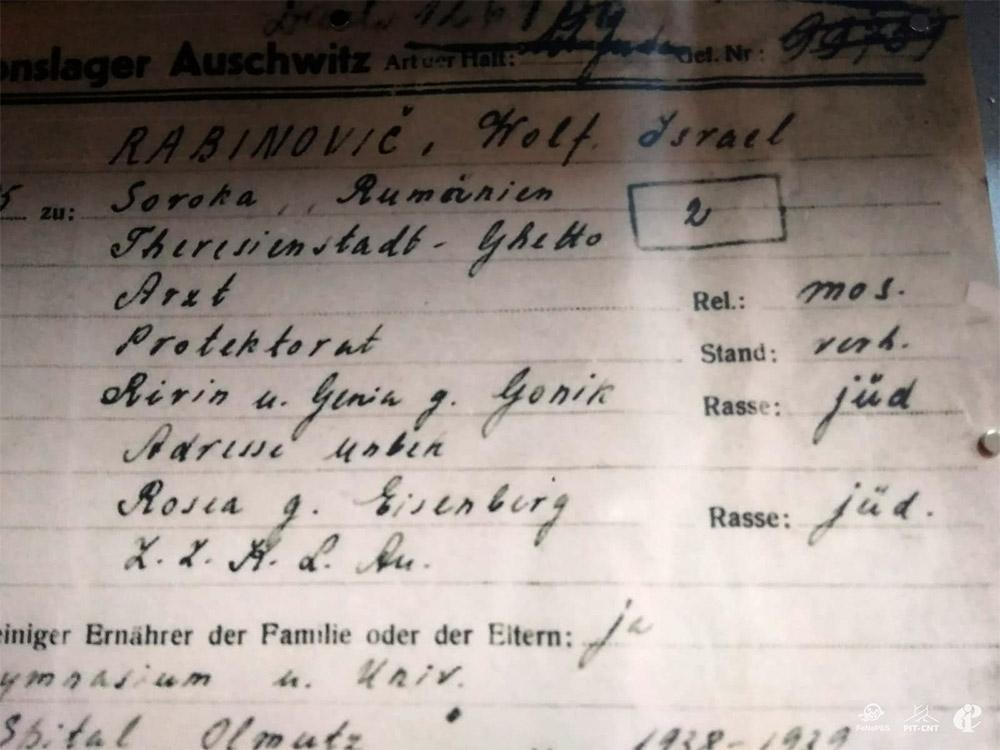 onslager Auschwitz Art der Haft: Gef. Nr:
RABINOVIČ, Wolf Israel
zu: Soroka, Rumänien
2
Theresienstadt - Ghetto
Arzt Rel.: mos.
Protektorat Stand: verh.
Rivin u. Genia g. Gonik Rasse: jüd
Adresse unbek
Rosea g. Eisenberg Rasse: jüd.
Z. Z. K. L. Au.
einiger Ernährer der Familie oder der Eltern: ja
ymnasium u. Univ.
Spital Olmütz 1938-1939
FoNoPES PIT-CNT